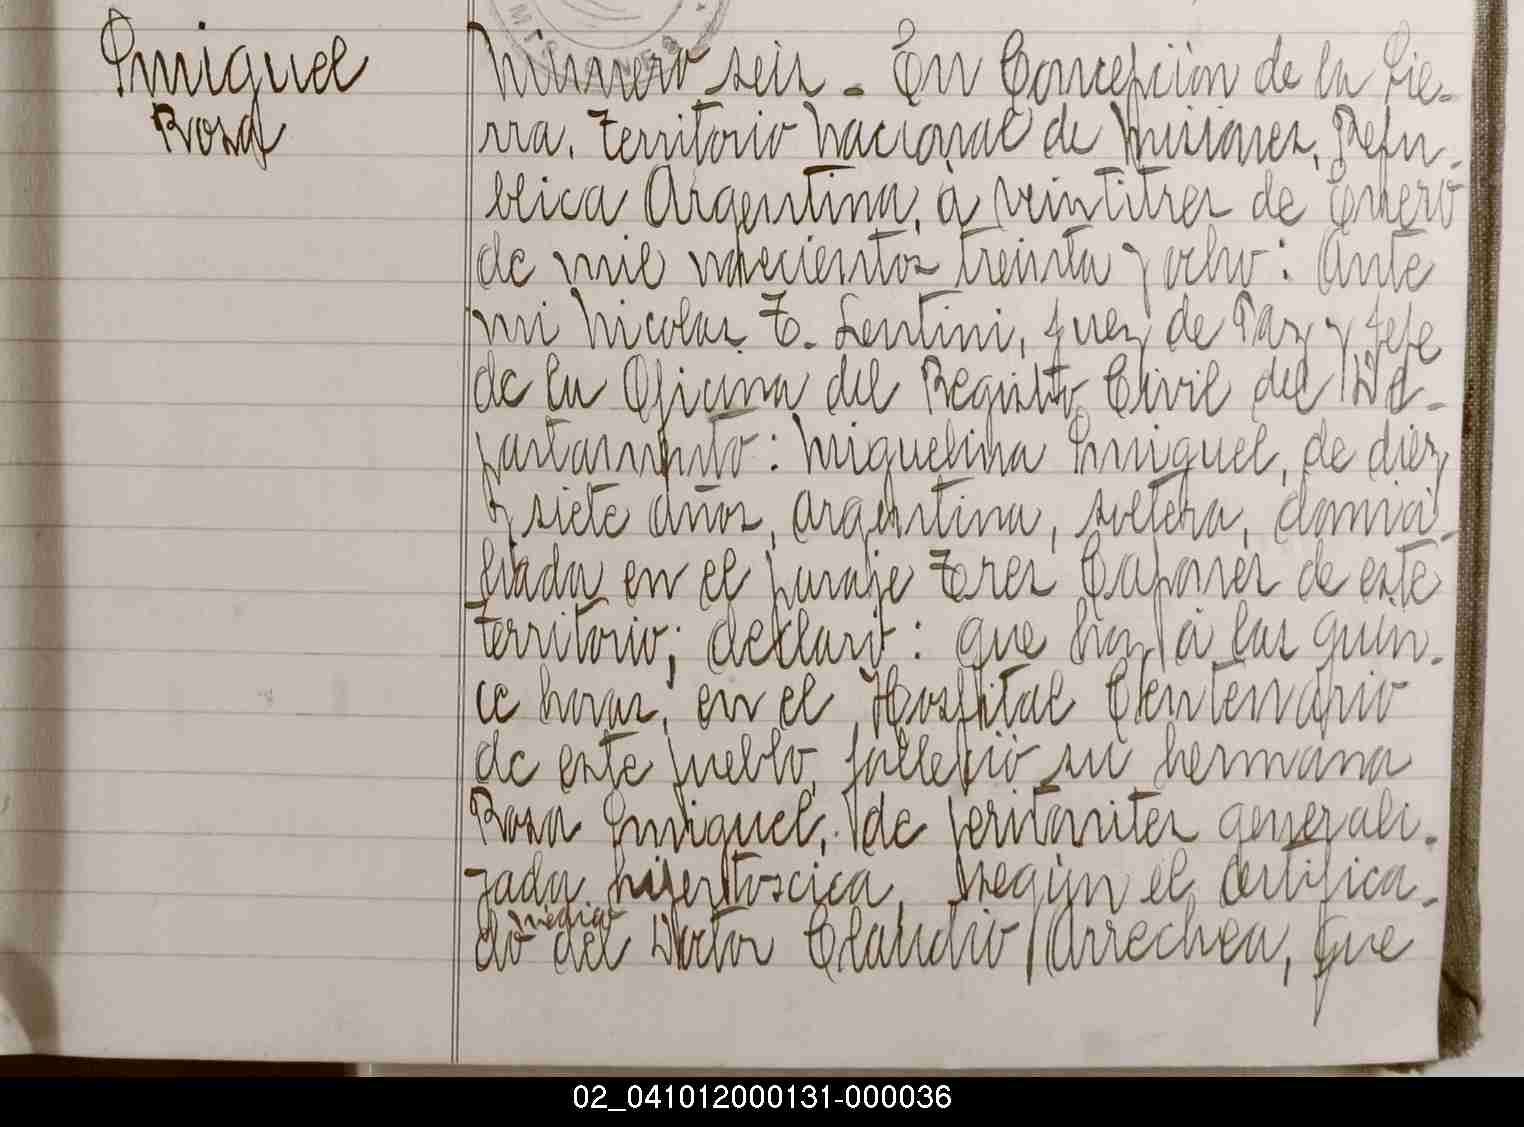 Smiguel
Rosa
MISIONES
Número seis - En Concepción de la Sie-
rra, Territorio Nacional de Misiones, Repú-
blica Argentina, à veintitres de Enero
de mil novecientos treinta y ocho: Ante
mi Nicolas T. Lentini, Juez de Paz y Jefe
de la Oficina del Registro Civil del De-
partamento: Miguelina Smiguel, de diez
y siete años, argentina, soltera, domici-
liada en el paraje Tres Capones de este
Territorio; declaró: que hoy à las quin-
ce horas, en el Hospital Centenario
de este pueblo, falleció su hermana
Rosa Smiguel, de peritonites generali-
zada, según el certifica-
do médico del Doctor Claudio Arrechea, que
02_041012000131-000036